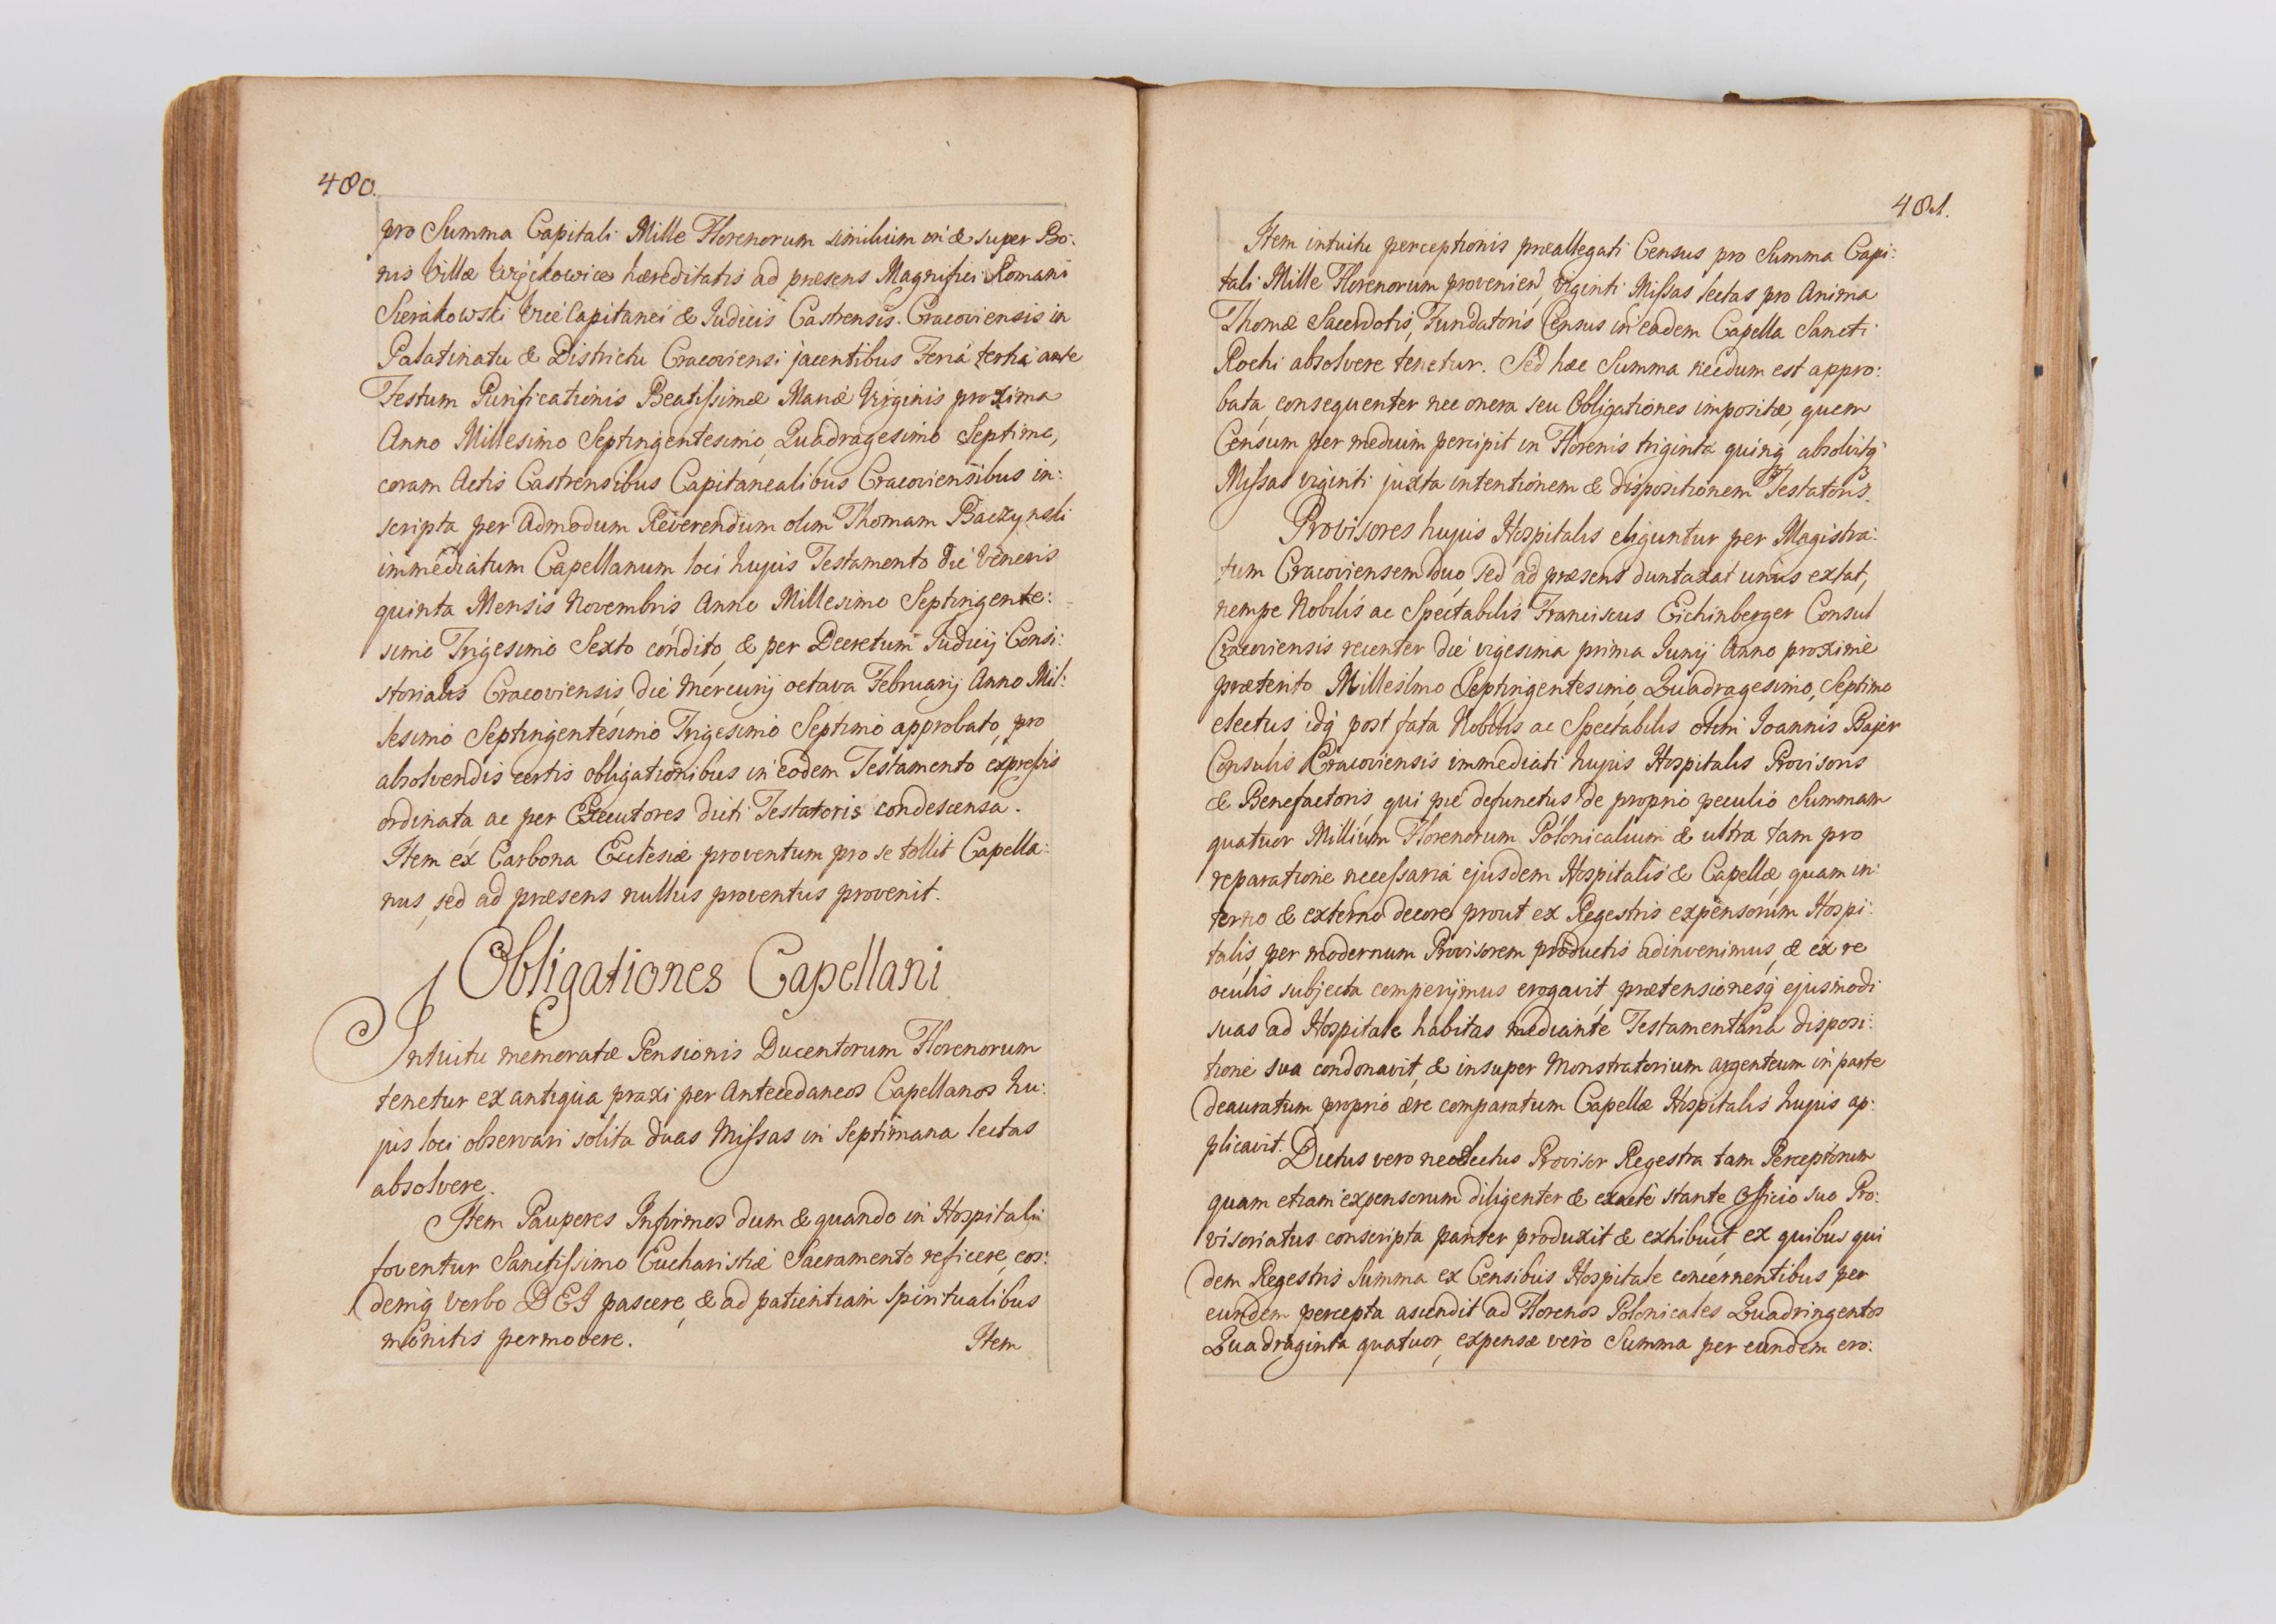 480.
pro Summa Capitali Mille Florenorum similium in & super Bo:
nis Villæ Wyękowice hæreditatis ad præsens Magnifici Romani
Sierakowski Vice Capitanei & Judicis Castrensis Cracoviensis in
Palatinatu & Districtu Cracoviensi jacentibus Feria tertia ante
Festum Purificationis Beatissimæ Mariæ Virginis proxima
Anno Millesimo Septingentesimo Quadragesimo Septimo,
coram Actis Castrensibus Capitanealibus Cracoviensibus in:
scripta, per Admodum Reverendum olim Thomam Baczynski
immediatum Capellanum loci hujus Testamento die Veneris
quinta Mensis Novembris Anno Millesimo Septingente:
simo Trigesimo Sexto condito, & per Decretum Judicij Consi:
storialis Cracoviensis, die Mercurij octava Februarij Anno Mil:
lesimo Septingentesimo Trigesimo Septimo approbato, pro
absolvendis certis obligationibus in eodem Testamento expressis
ordinata ac per Executores dicti Testatoris condescensa.
Item ex Carbona Ecclesiæ proventum pro se tollit Capella:
nus, sed ad præsens nullus proventus provenit.
Obligationes Capellani
Intuitu memoratæ Pensionis Ducentorum Florenorum
tenetur ex antiqua praxi per Antecedaneos Capellanos hu:
jus loci observari solita duas Missas in Septimana lectas
absolvere.
Item Pauperes Infirmos dum & quando in Hospitali
foventur Sanctissimo Eucharistiæ Sacramento reficere, eos:
demq verbo DEI pascere, & ad patientiam spiritualibus
monitis permovere.
Item
481.
Item intuitu perceptionis præallegati Census pro Summa Capi:
tali Mille Florenorum provenien, viginti Missas lectas pro Anima
Thomæ Sacerdotis, Fundatoris Census in eadem Capella Sancti
Rochi absolvere tenetur. Sed hæc Summa necdum est appro:
bata, consequenter nec onera seu Obligationes impositæ, quem
Censum per medium percipit in Florenis triginta quinq absolvitq
Missas viginti juxta intentionem & dispositionem Testatoris.
Provisores hujus Hospitalis eliguntur per Magistra:
tum Cracoviensem duo, sed ad præsens duntaxat unus extat,
nempe Nobilis ac Spectabilis Franciscus Eichinberger Consul
Cracoviensis recenter die vigesima prima Junij Anno proxime
præterito Millesimo Septingentesimo Quadragesimo Septimo
electus idq post fata Nobilis ac Spectabilis olim Joannis Bajer
Consulis Cracoviensis immediati hujus Hospitalis Provisoris
& Benefactoris qui pie defunctus de proprio peculio Summam
quatuor Millium Florenorum Polonicalium & ultra tam pro
reparatione necessaria ejusdem Hospitalis & Capellæ, quam in:
terno & externo decore prout ex Regestris expensorum Hospi:
talis per modernum Provisorem productis adinvenimus, & ex re
oculis subjecta comperijmus erogavit prætensionesq ejusmodi
suas ad Hospitale habitas mediante Testamentaria disposi:
tione sua condonavit, & insuper Monstratorium argenteum in parte
deauratum proprio ære comparatum Capellæ Hospitalis hujus ap:
plicavit. Dictus vero neoelectus Provisor Regestra tam Perceptorum
quam etiam expensorum diligenter & exacte stante Officio suo Pro:
visoriatus conscripta pariter produxit & exhibuit ex quibus qui
dem Regestris Summa ex Censibus Hospitale concernentibus per
eundem percepta ascendit ad Florenos Polonicales Quadringentos
Quadraginta quatuor, expensæ vero Summa per eundem ero: